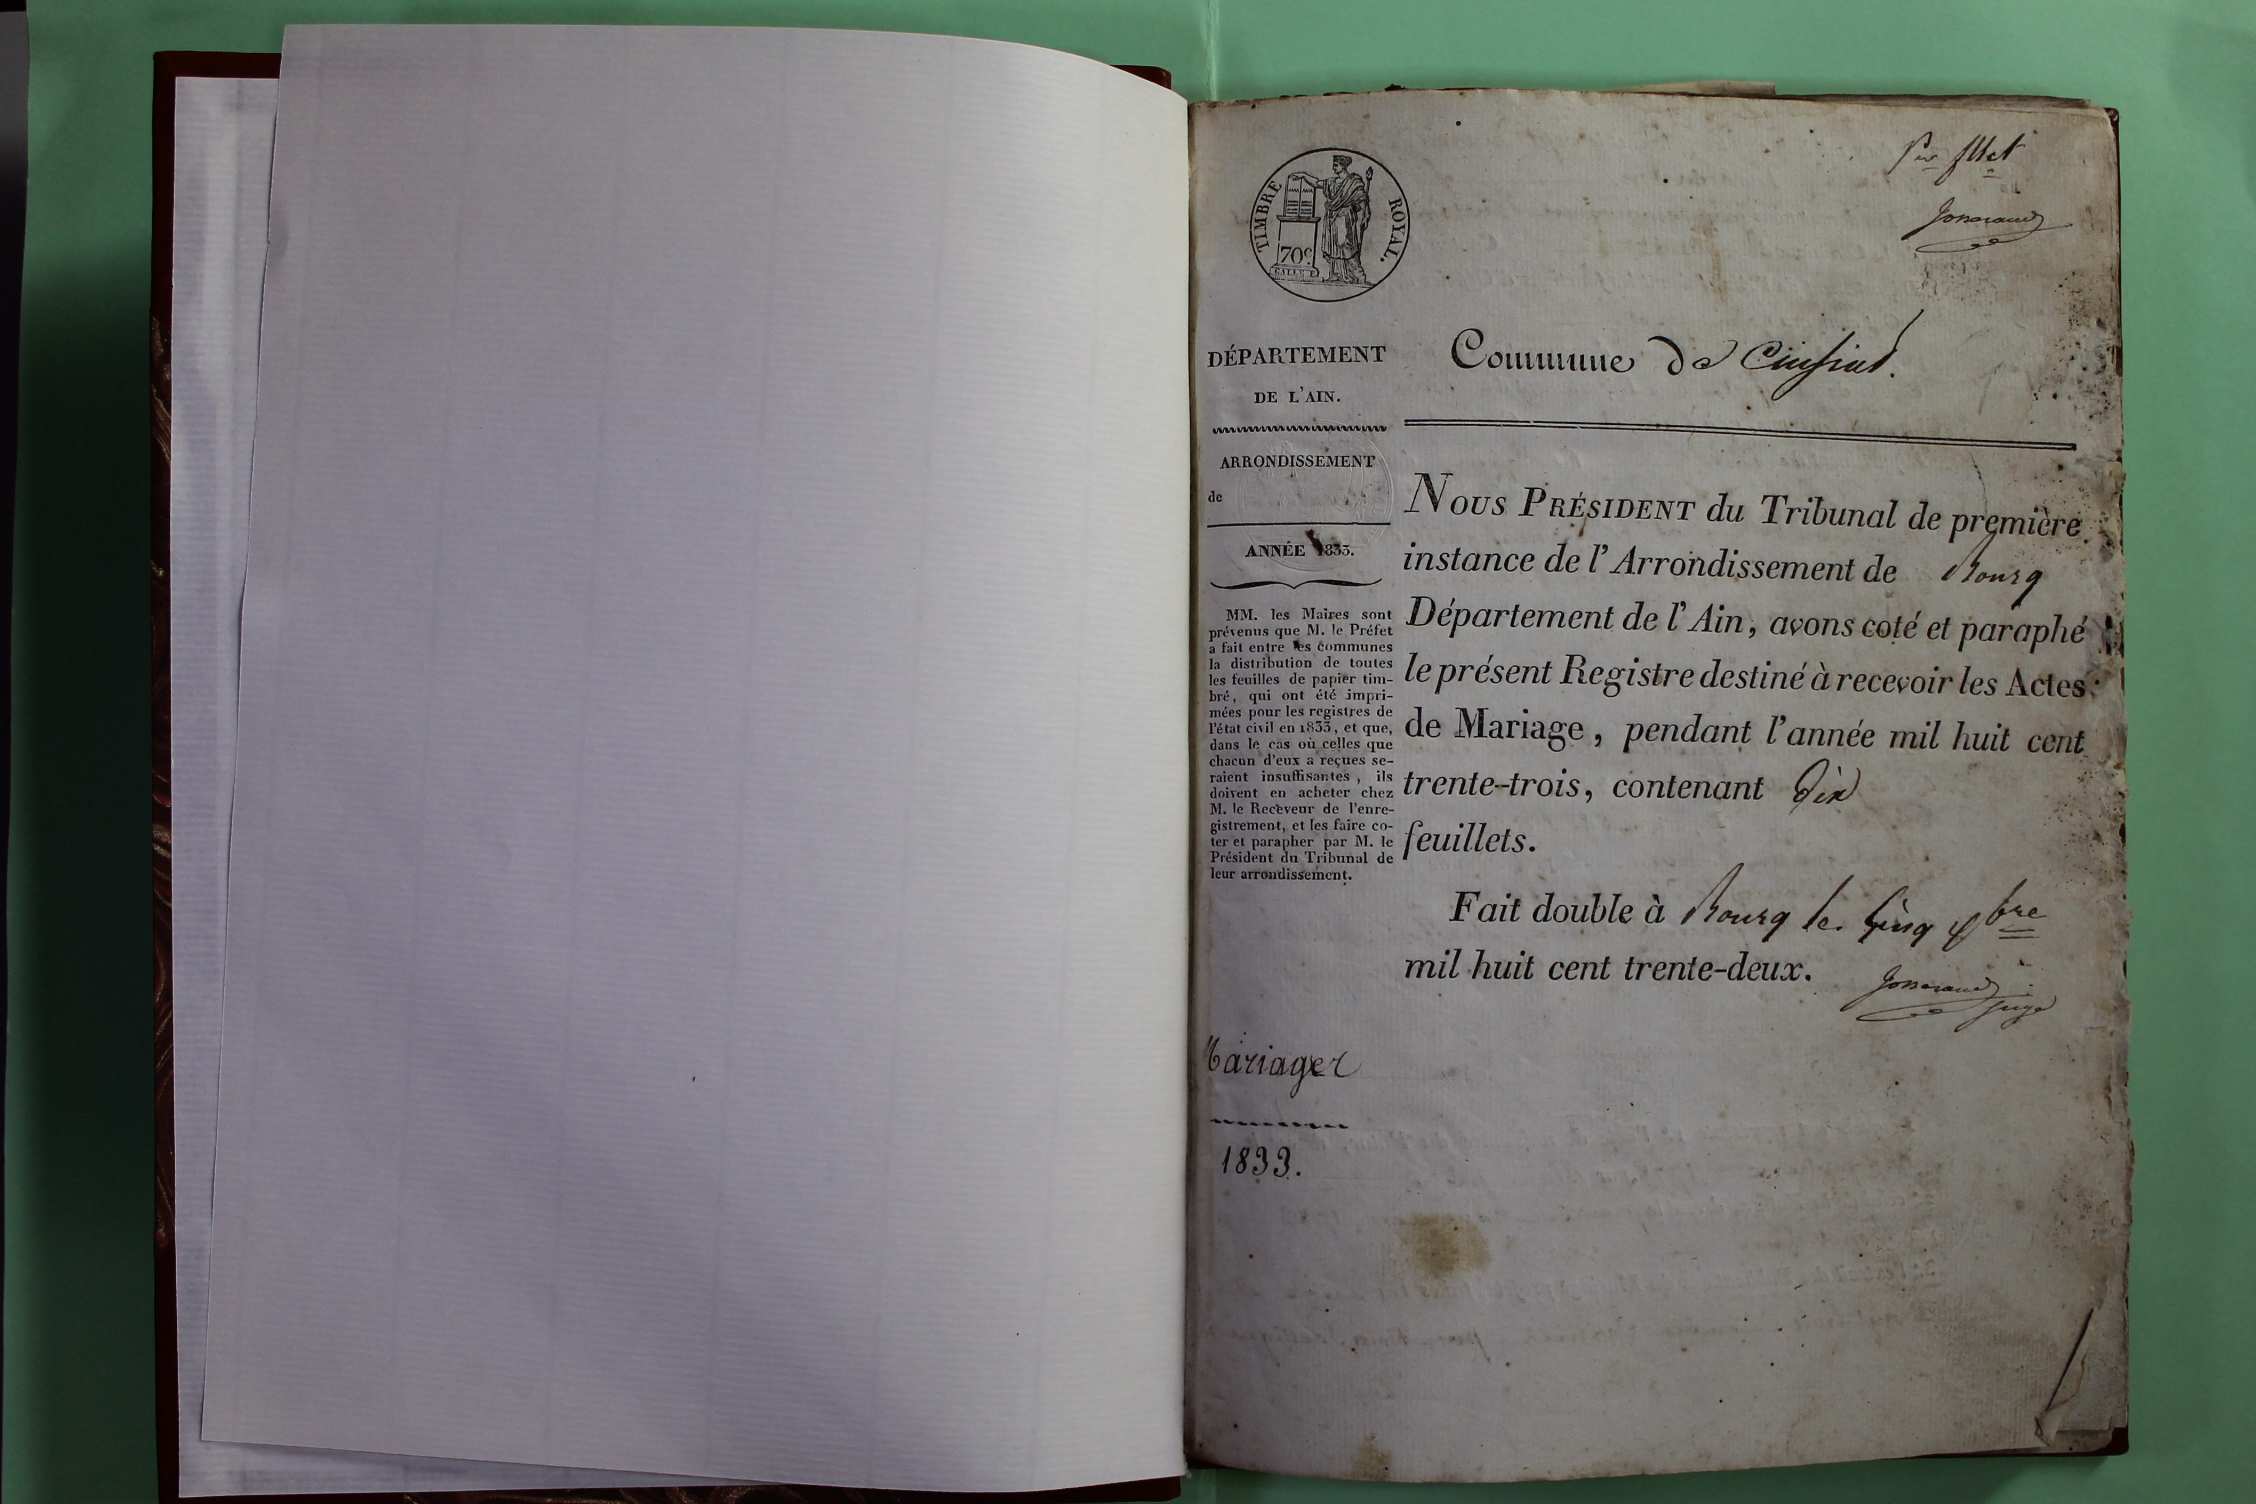 Per fllet
Josserand
TIMBRE ROYAL.
70c
DÉPARTEMENT
DE L'AIN.
ARRONDISSEMENT
de
ANNÉE 1833.
MM. les Maires sont
prévenus que M. le Préfet
a fait entre les communes
la distribution de toutes
les feuilles de papier tim-
bré, qui ont été impri-
mées pour les registres de
l'état civil en 1833, et que,
dans le cas où celles que
chacun d'eux a reçues se-
raient insuffisantes, ils
doivent en acheter chez
M. le Receveur de l'enre-
gistrement, et les faire co-
ter et parapher par M. le
Président du Tribunal de
leur arrondissement.
Mariages
1833.
Commune de Cuisiat.
NOUS PRÉSIDENT du Tribunal de première
instance de l'Arrondissement de Bourg
Département de l'Ain, avons coté et paraphé
le présent Registre destiné à recevoir les Actes
de Mariage, pendant l'année mil huit cent
trente-trois, contenant Dix
feuillets.
Fait double à Bourg le Cinq
mil huit cent trente-deux.
Josserand
juge